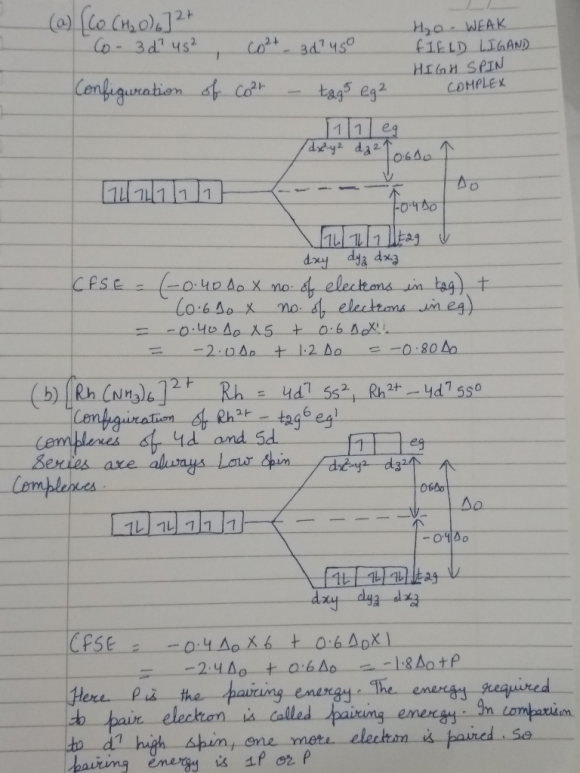 (a) [Co(H2O)6]2+
H2O - WEAK
FIELD LIGAND
HIGH SPIN
COMPLEX
Co - 3d7 4s2 , Co2+ - 3d7 4s0
Configuration of Co2+ - t2g5 eg2
1 1 eg
dx2-y2 dz2
0.6Δo
Δo
-0.4Δo
1L 1L 1 1 1
1L 1L 1 t2g
dxy dyz dxz
CFSE = (-0.40Δo × no. of electrons in t2g) +
(0.6Δo × no. of electrons in eg)
= -0.40Δo × 5 + 0.6Δo×
= -2.0Δo + 1.2Δo = -0.80Δo
(b) [Rh(NH3)6]2+ Rh = 4d7 5s2, Rh2+ - 4d7 5s0
Configuration of Rh2+ - t2g6 eg1
complexes of 4d and 5d
Series are always Low spin
Complexes.
1 eg
dx2-y2 dz2
0.6Δo
Δo
-0.4Δo
1L 1L 1 1 1
1L 1L 1L t2g
dxy dyz dxz
CFSE = -0.4Δo × 6 + 0.6Δo×1
= -2.4Δo + 0.6Δo = -1.8Δo+P
Here P is the pairing energy. The energy required
to pair electron is called pairing energy. In comparison
to d7 high spin, one more electron is paired. So
pairing energy is 1P or P